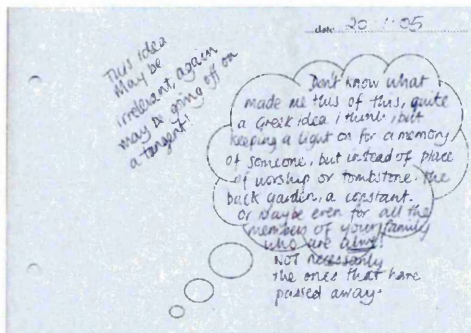 date 20.1.05
This idea
May be
irrelevant, again
may be going off on
a tangent!
Don't know what
made me this of this, quite
a Greek idea I think, but
keeping a light on for a memory
of someone, but instead of place
of worship or tombstone. the
back garden, a constant.
Or maybe even for all the
members of your family
who are alive!
NOT necessarily
the ones that have
passed away.